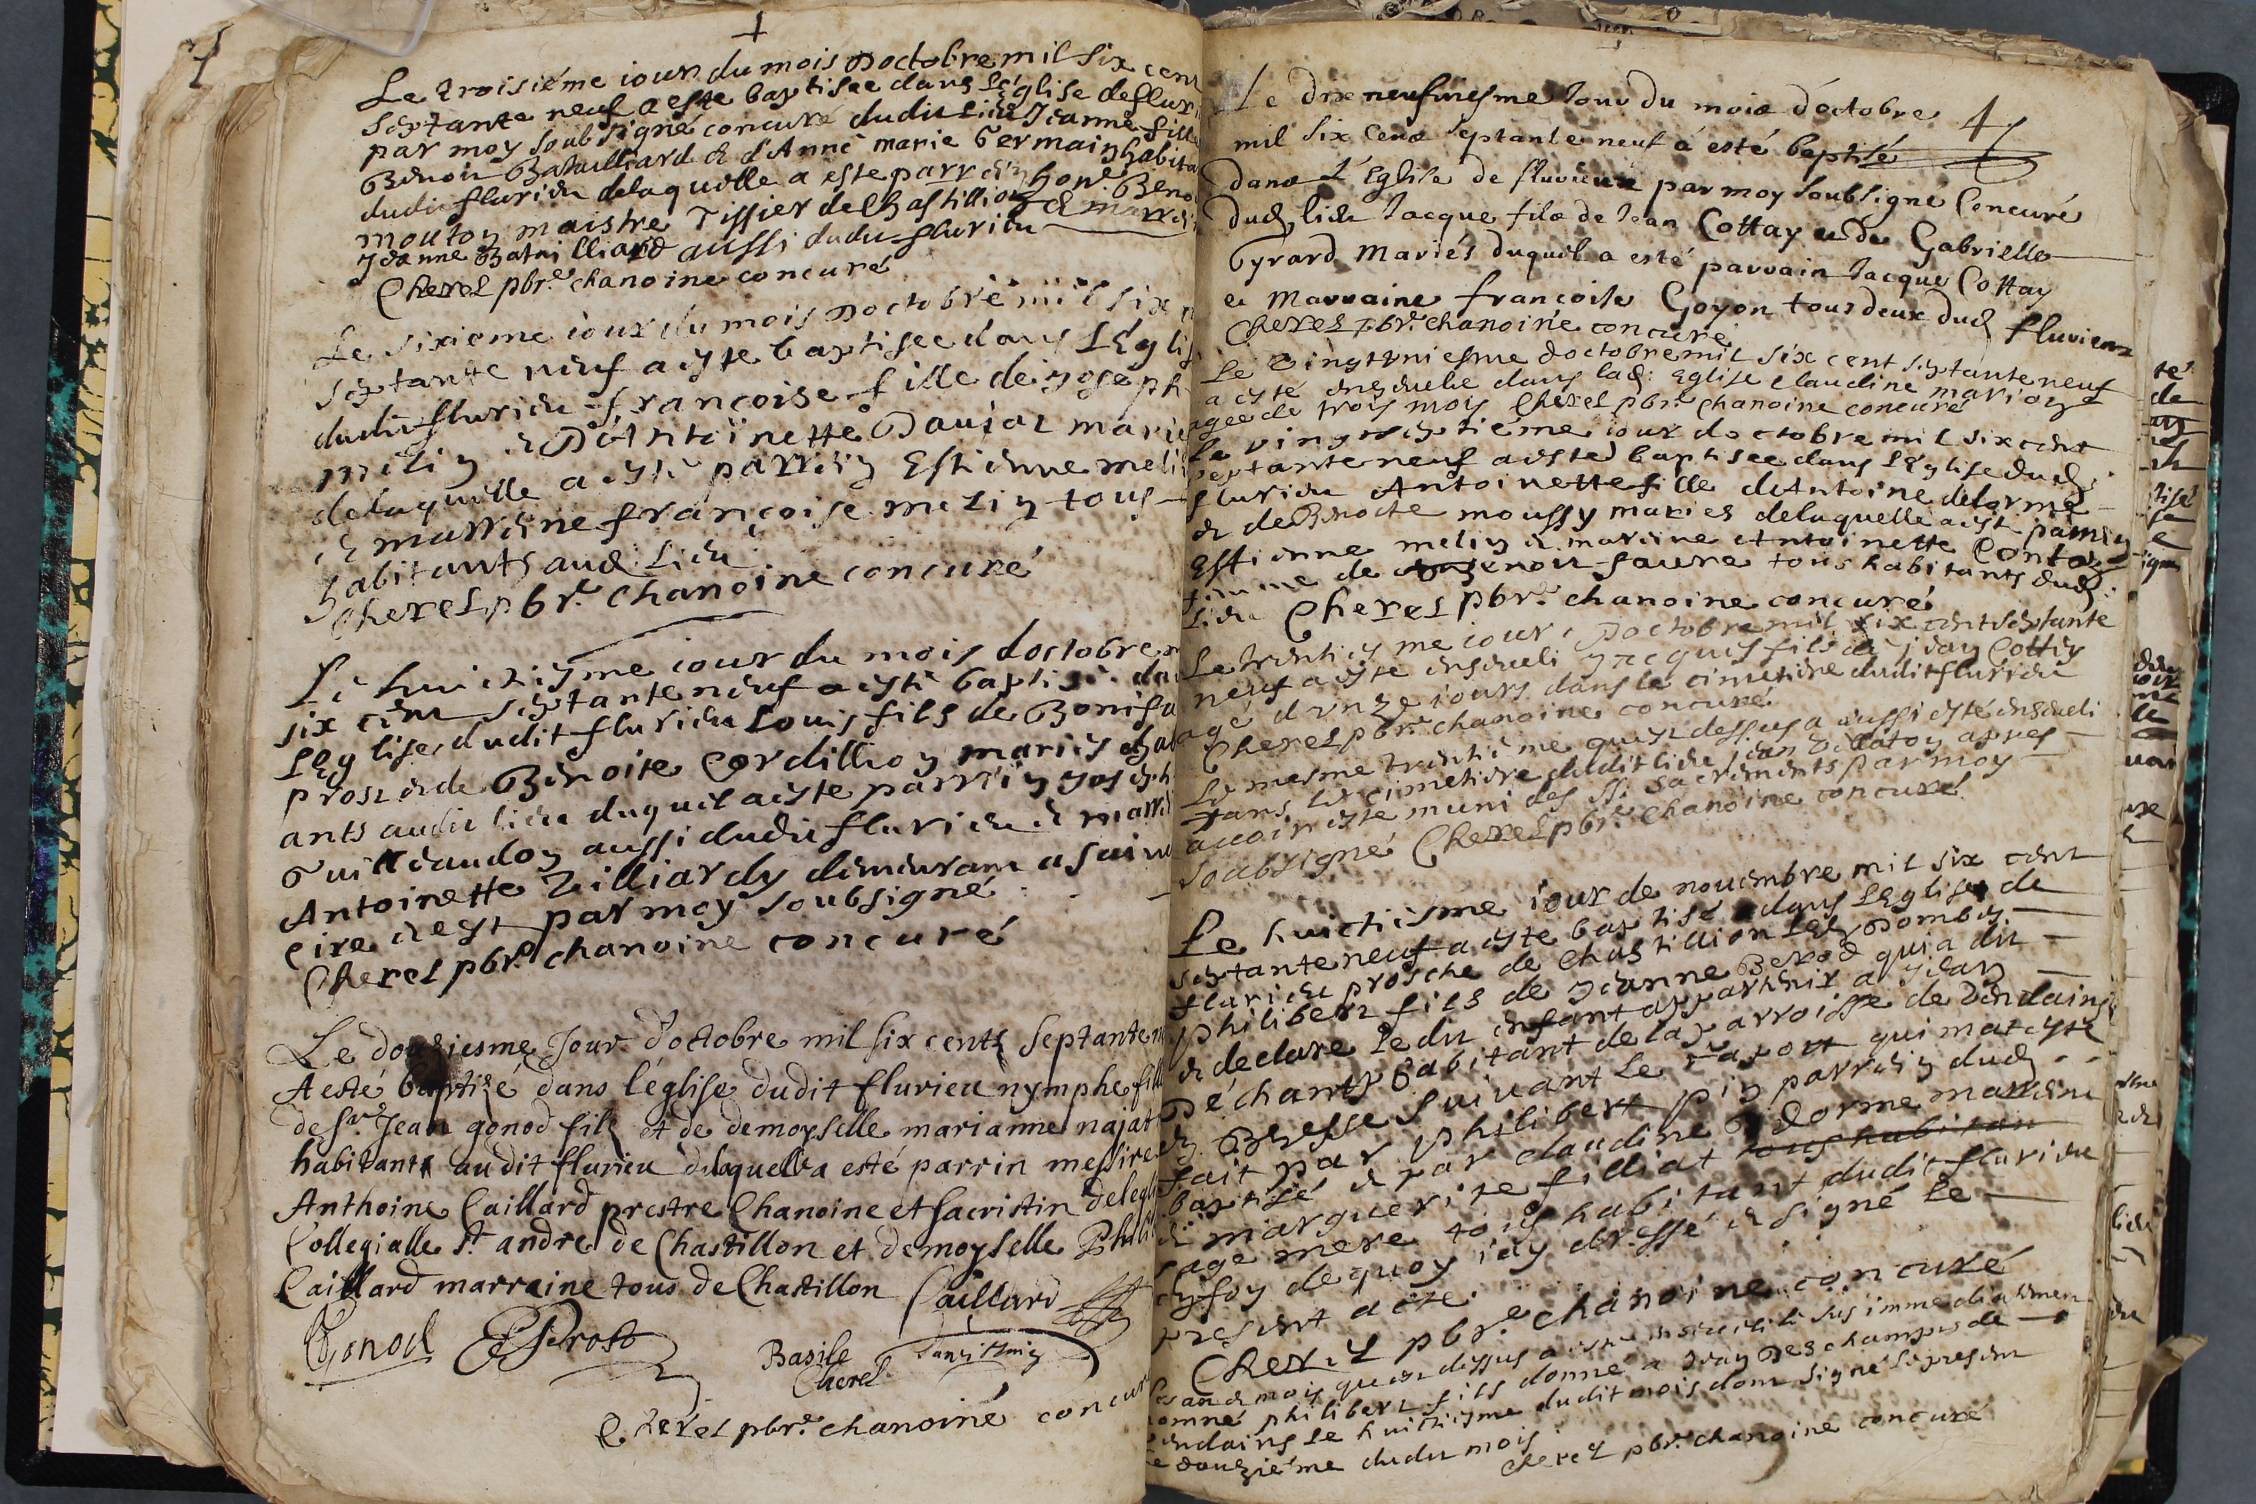 Le troisiéme iour du mois Doctobre mil six cent
septante neuf a este baptisee dans L'Eglise de fluri
par moy soubsigné concuré dudit lieu Jeanne fille
Benoit Batailliard & d'Anne marie Germain habita
dudit flurieu delaquelle a este parrein hon. Beno
mouton maistre Tissier de Chastillion & marrei
Jeanne Batailliard aussi dudit flurieu
Cherel pbr. chanoine concuré
Le sixieme iour du mois Doctobre mil six
septante neuf a este baptisee dans L'Eglis
dudit flurieu francoise fille de joseph
melin & D'Antoinette Daujat marie
delaquelle a este parrein Estienne meli
& marreine françoise melin tous
habitants aud. Lieu
Cherel pbr. chanoine concuré
Le huictiesme iour du mois doctobre
six cent septante neuf a esté baptisé da
L'Eglise dudit flurieu Louis fils de Bonifa
prost & de Benoite Cordillion mariés hab
ants audit lieu duquel a este parrein joseph
Guilleaudon aussi dudit flurieu & marr
Antoinette Zilliardy demeurant a sain
Cire & est par moy soubsigné
Cherel pbr. chanoine concuré
Le douziesme Jour d'octobre mil six cents septante
A esté baptizé dans léglise dudit flurieu nymphe fill
de Sr. Jean gonod fils et de demoyselle marianne najat
habitants audit flurieu delaquelle a esté parrin messire
Anthoine Caillard prestre Chanoine et sacristin de legl
Collegialle St. andre de Chastillon et demoyselle Phili
Caillard marraine tous de Chastillon Caillard
Gonod Prost
Basile
Cherel
Cherel pbr. chanoiné concuré
Le dixneufviesme Jour du mois d'octobre
mil six Cens septante neuf á esté baptisé
dans L'Eglise de fluvieux par moy soubsigné Concuré
dud. lieu Jacque fils de Jean Cottay et de Gabrielle
Gyrard Mariés duquel a esté parvain Jacque Cottay
et Marvaine francoise Goyon tous deux dud. fluvieux
Cherel pbr. chanoine concuré
Le vingtuniesme doctobre mil six cent septante neuf
a esté ensevelie dans lad. Eglise Claudine marion
agee de trois mois Cherel pbr. chanoine concuré
Le vingt septiéme iour doctobre mil six cent
septante neuf a esté baptisee dans L'Eglise dud.
flurieu Antoinette fille d'Antoine delorme
& de Benoite moussy maries delaquelle a est parrein
Estienne melin & mareine Antoinette Conta
femme de Benoit faure tous habitants dud.
Lieu Cherel pbr. chanoine concuré
Le trentiesme iour Doctobre mil six cent septante
neuf a este enseveli jacques fils de jean Cottey
agé dunze iours dans le cimetiere dudit flurieu
Cherel pbr. chanoine concuré
Le mesme trentiéme que dessus a aussi esté enseveli
dans le cimetiere dudit lieu jean Zillaton apres
avoir este muni des SS. sacrements par moy
soubsigné Cherel pbr. chanoine concuré
Le huictiesme iour de novembre mil six cent
septante neuf a este baptisé dans L'Eglise de
flurieu prosche de Chastillion Les Dombes
philibert fils de jeanne Berod qui a dit
& declare Ledit enfant appartenir a jean
Dechamps habitant de la parroisse de Dendains
en Bresse suivant Le raport qui m'at este
fait par Philibert pin parrein dud.
baptisé & par claudine Delorme marreine
& marguerite filliat tous habitan
sage mere tous habitant dudit flurieu
en foy de quoy iay dressé & signé Le
present acte
Cherel pbr. chanoine concuré
Les an & mois que dessus a este enseveli
nomme philibert fils donné a Jean Deschamps de
dendains Le huictiesme dudit mois dont signé Le present
Le douzieme dudit mois
Cherel pbr. chanoine concuré